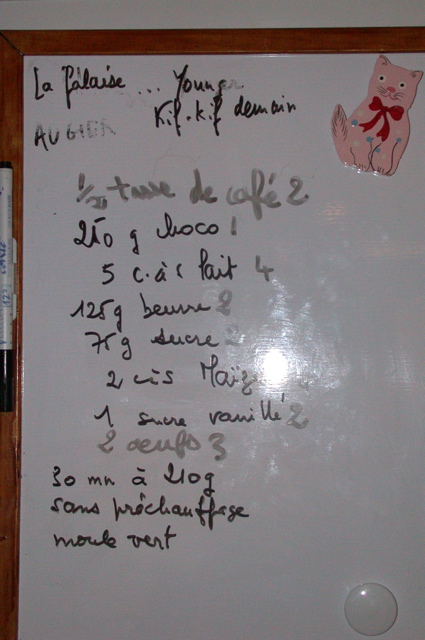 La falaise ... Younger
Kif.kif demain
AUGIER
1/2 tasse de café 2
250 g choco 1
5 c.à c lait 4
125g beurre 2
75g sucre 2
2 càs Maïz
1 sucre vanillé 2
2 oeufs 3
30 mn à 210g
sans préchauffage
moule vert